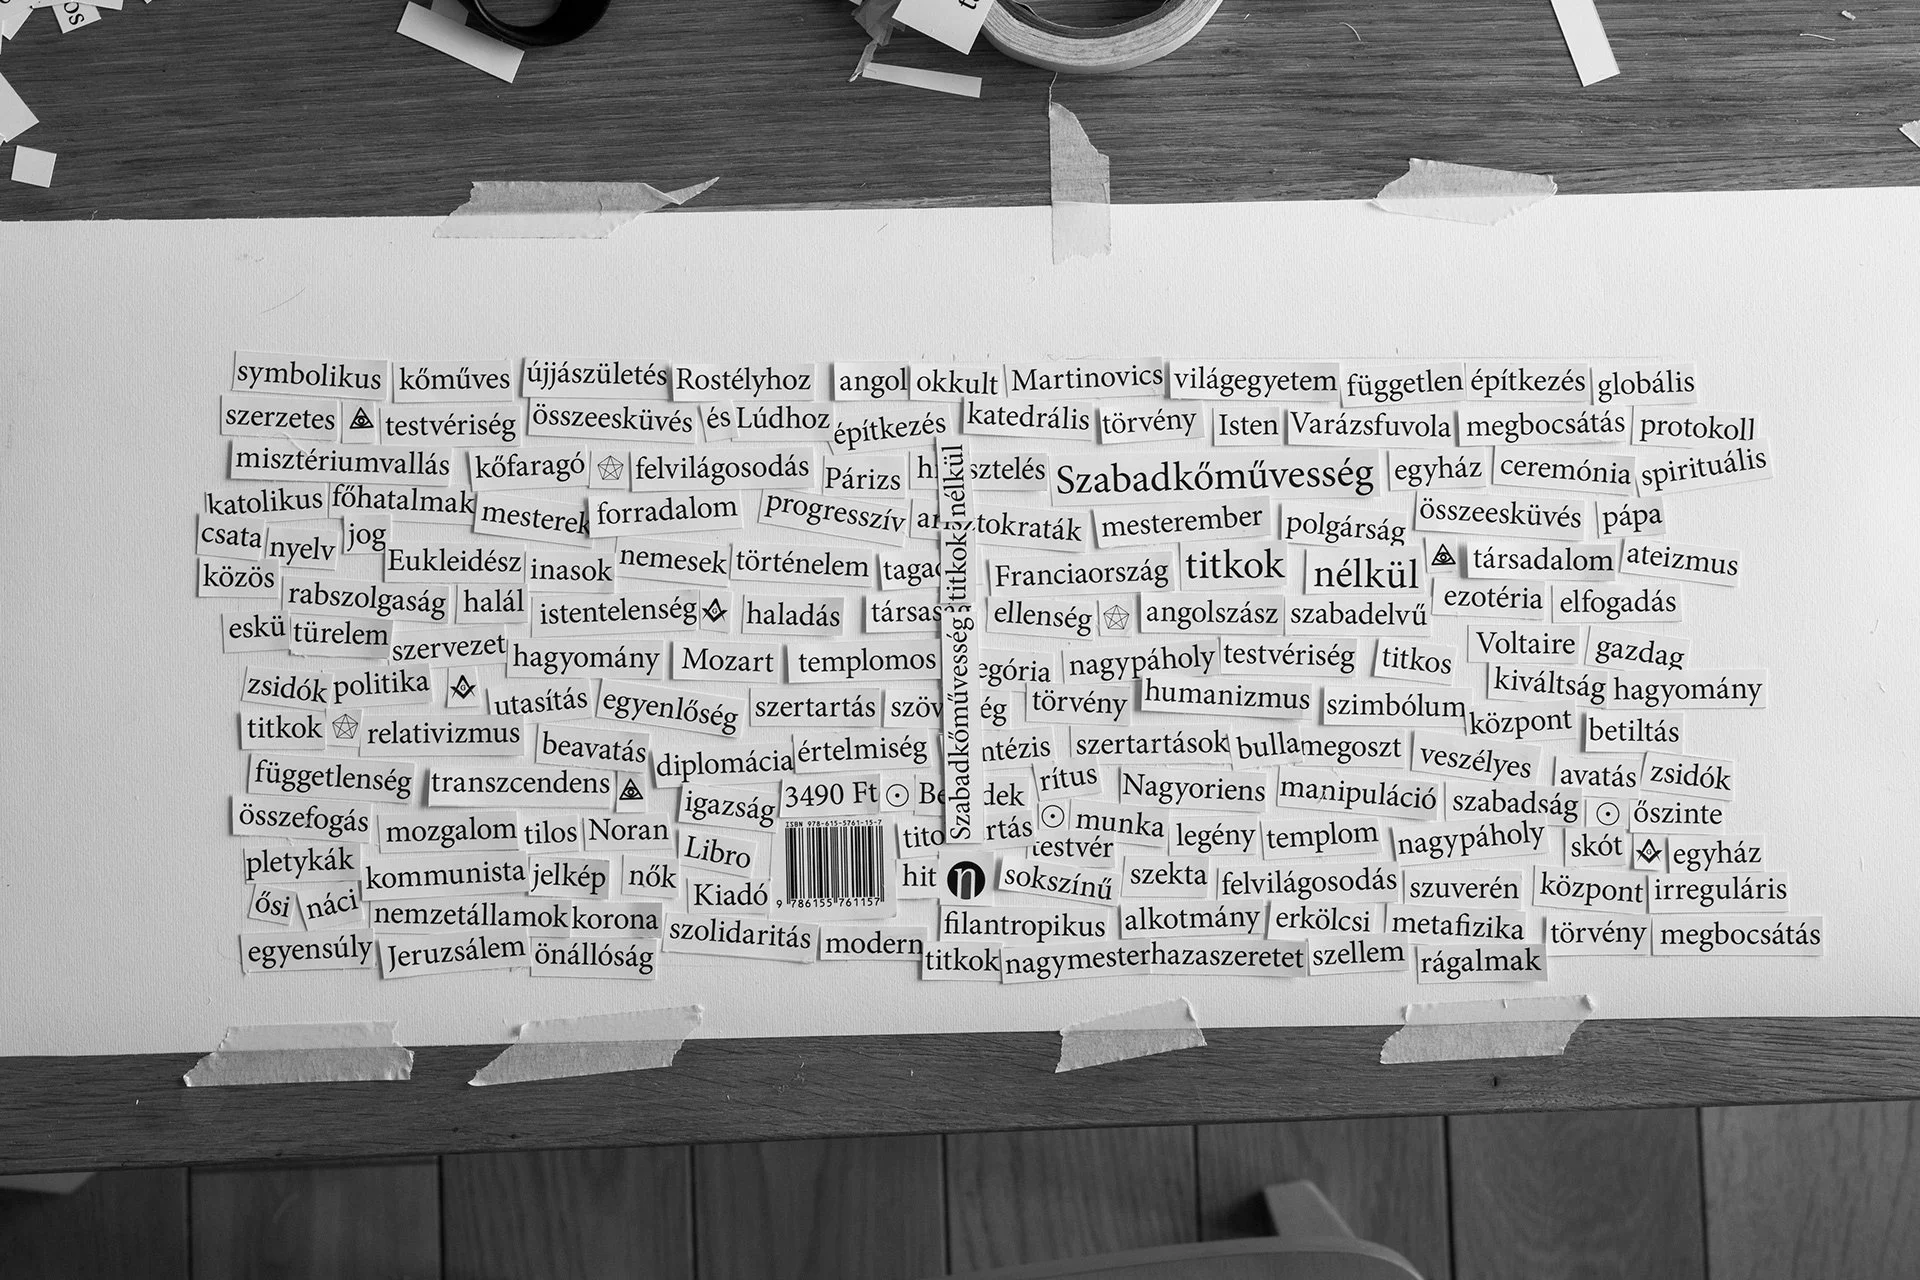 symbolikus kőműves újjászületés Rostélyhoz angol okkult Martinovics világegyetem független építkezés globális
szerzetes testvériség összeesküvés és Lúdhoz építkezés katedrális törvény Isten Varázsfuvola megbocsátás protokoll
misztériumvallás kőfaragó felvilágosodás Párizs Szabadkőművesség egyház ceremónia spirituális
katolikus főhatalmak mesterek forradalom progresszív mesterember polgárság összeesküvés pápa
csata nyelv jog Eukleidész inasok nemesek történelem Franciaország titkok nélkül társadalom ateizmus
közös rabszolgaság halál istentelenség haladás ellenség angolszász szabadelvű ezotéria elfogadás
eskü türelem szervezet hagyomány Mozart templomos nagypáholy testvériség titkos Voltaire gazdag
zsidók politika utasítás egyenlőség szertartás törvény humanizmus szimbólum kiváltság hagyomány
titkok relativizmus beavatás diplomácia értelmiség szertartások bulla megoszt központ veszélyes betiltás
függetlenség transzcendens igazság 3490 Ft rítus Nagyoriens manipuláció szabadság avatás zsidók
összefogás mozgalom tilos Noran munka legény templom nagypáholy őszinte
pletykák kommunista jelkép nők Libro testvér skót egyház
ISBN 978-615-5761-15-7
9 786155 761157
ősi náci nemzetállamok korona Kiadó hit n sokszínű szekta felvilágosodás szuverén központ irreguláris
egyensúly Jeruzsálem önállóság szolidaritás modern filantropikus alkotmány erkölcsi metafizika törvény megbocsátás
titkok nagymester hazaszeretet szellem rágalmak
Szabadkőművesség titkok nélkül